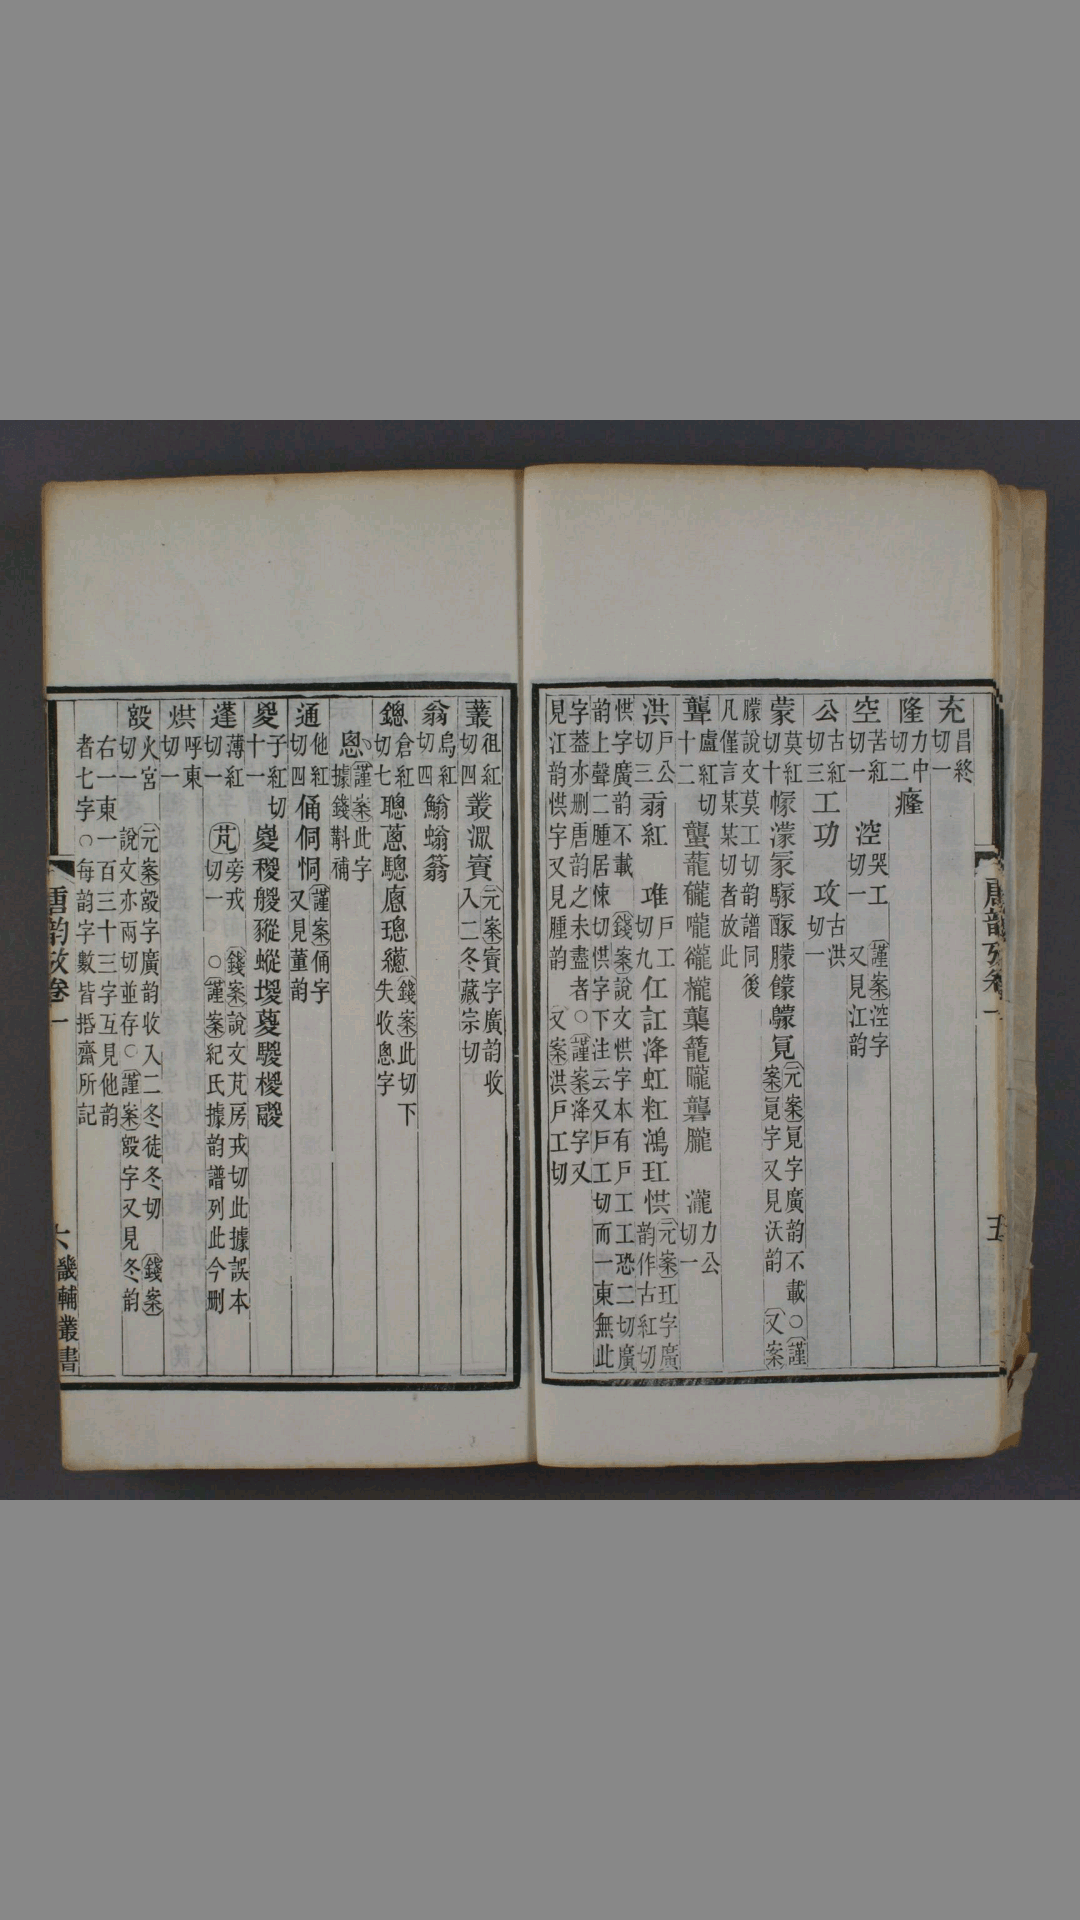 充昌終切一
隆力中切二癃
空苦紅切一 涳哭工切一謹案涳字又見江韵
公古紅切三工功 攻古洪切一
蒙莫紅切十幪濛冡騣酴朦饛鸏冃元案冃字廣韵不載○謹案冃字又見沃韵又案
朦說文莫工切韵譜同後凡僅言某某切者放此
聾盧紅切十二蠪蘢礲嚨襱櫳蘴籠曨礱朧 瀧力公切一
洪戶公切三翃紅 堆戶工切九仜訌洚虹粠鴻玒㤨元案玒字廣韵作古紅切
㤨字廣韵不載錢案說文㤨字本有戶工工恐二切廣韵上聲二腫居悚切㤨字下注云又戶工切而一東無此
字葢亦刪唐韵之未盡者○謹案洚字又見江韵㤨字又見腫韵又案洪戶工切
唐韵攷卷一
五
叢徂紅切四叢潀賨元案賨字廣韵收入二冬藏宗切
翁烏紅切四鰅螉䈵
鏓倉紅切七聰蔥驄廖璁繱錢案此切下失收悤字
悤謹案此字據錢斠補
通他紅切四俑侗恫謹案俑字又見董韵
夋子紅切十一嵏稯艐豵蝬堫葼騣椶鬷
蓬薄紅切一 芃旁戎切一 錢案說文芃房戎切此據誤本○謹案紀氏據韵譜列此今刪
烘呼東切一
㲾火宮切一 元案㲾字廣韵收入二冬徒冬切錢案說文亦兩切並存○謹案㲾字又見冬韵
右一東一百三十三字互見他韵者七字○每韵字數皆㨖齋所記
唐韵攷卷一
六
畿輔叢書